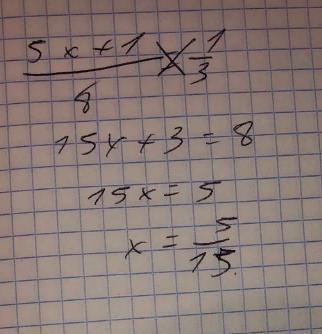 5x+1/8 = 1/3
15x+3=8
15x=5
x=5/15